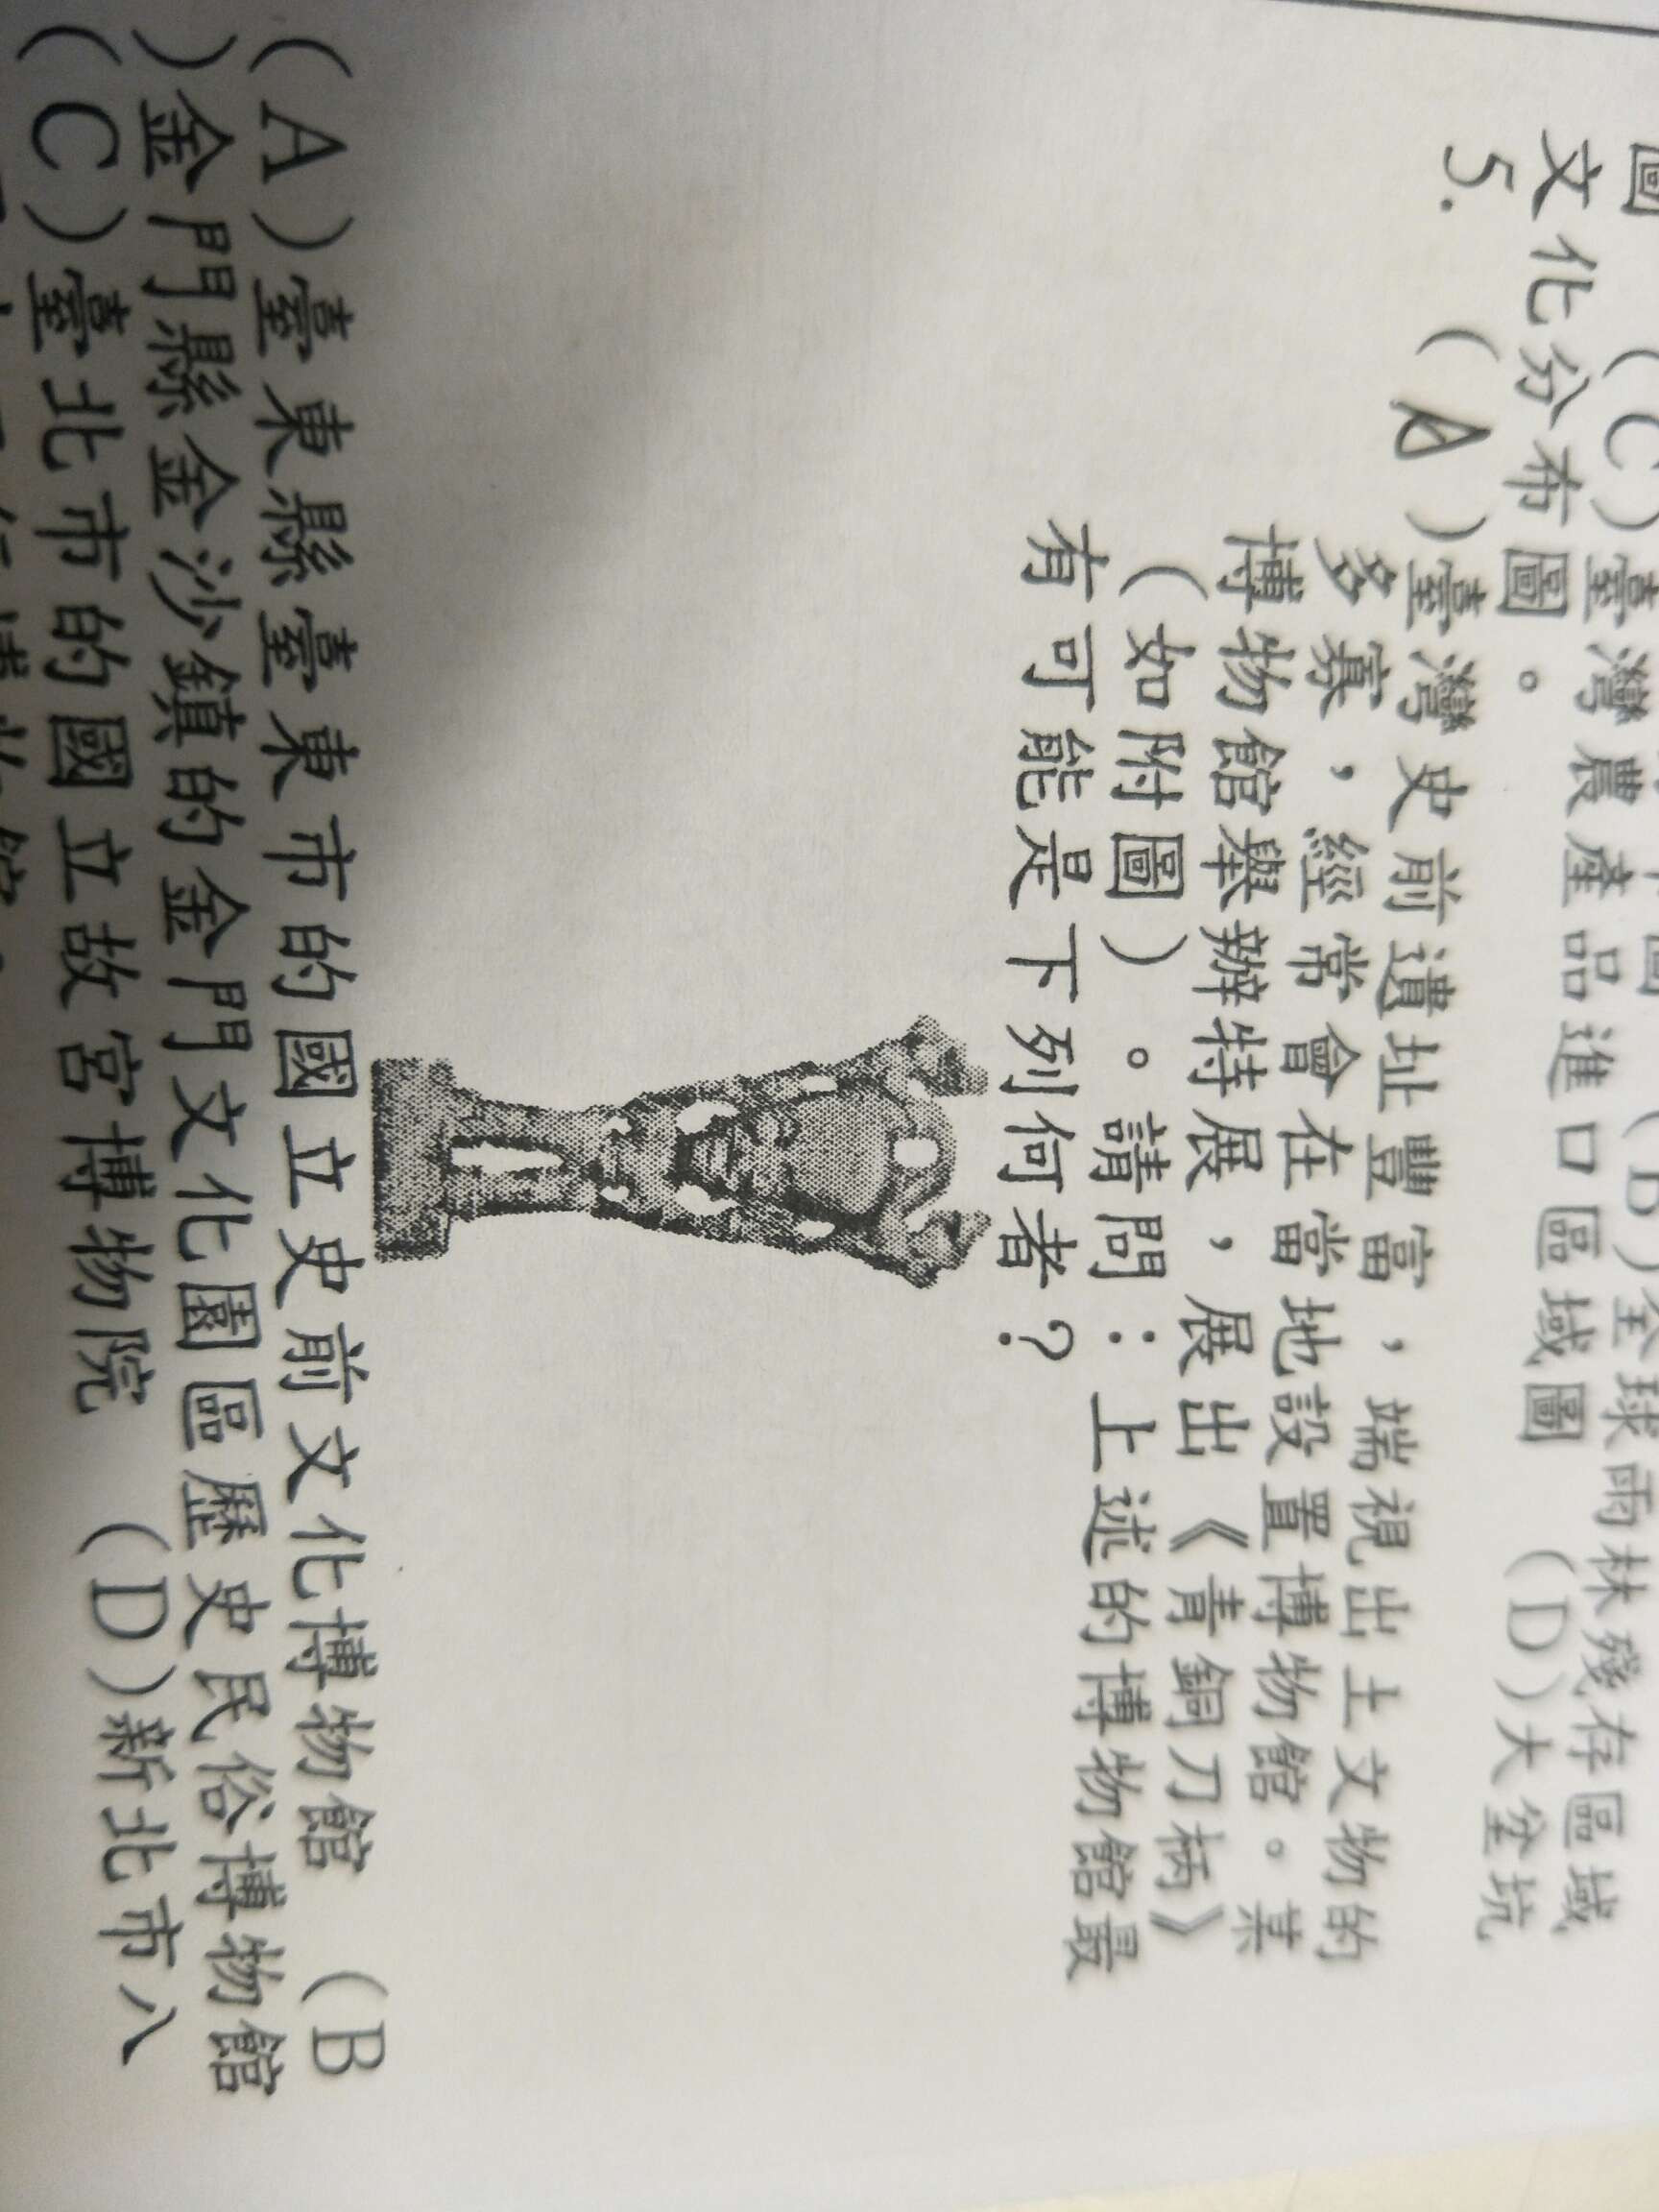 圖 (C)臺灣農產品進口區域圖 (D)大坌坑
文化分布圖。
5. (A)臺灣史前遺址豐富，端視出土文物的
多寡，經常會在當地設置博物館。某
博物館舉辦特展，展出《青銅刀柄》
(如附圖)。請問：上述的博物館最
有可能是下列何者？
(A)臺東縣臺東市的國立史前文化博物館 (B
)金門縣金沙鎮的金門文化園區歷史民俗博物館
(C)臺北市的國立故宮博物院 (D)新北市八